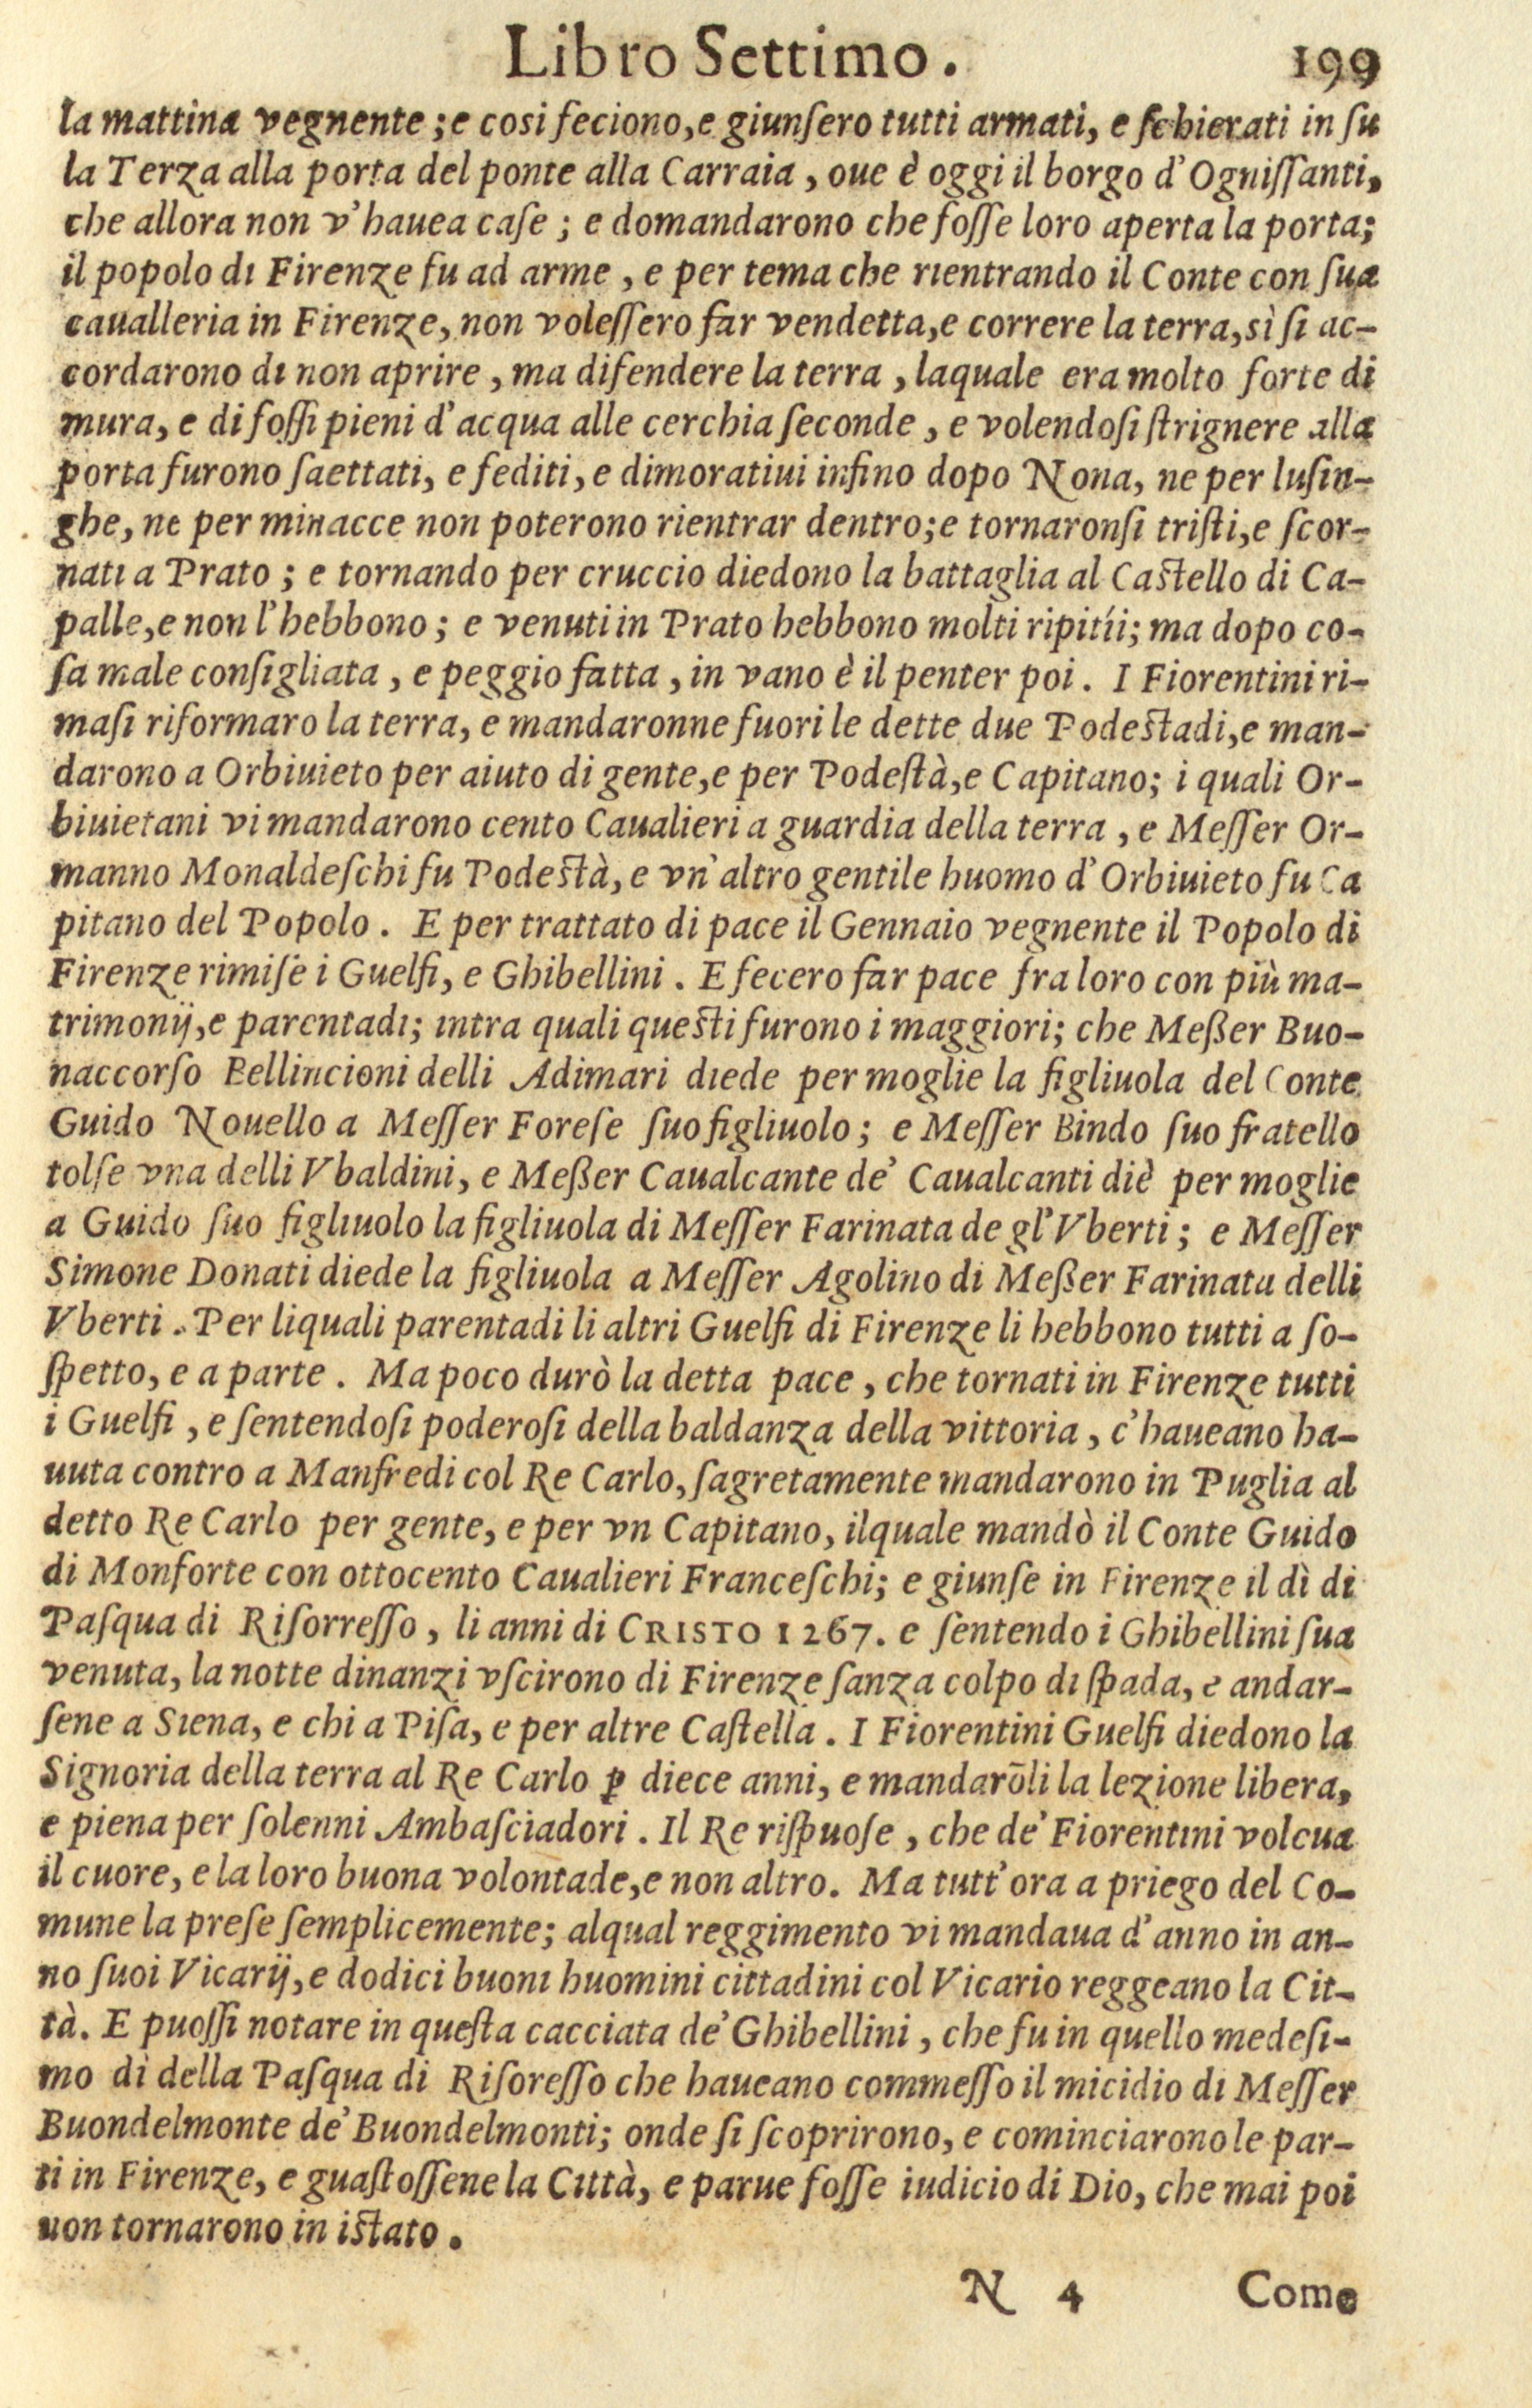 Libro Settimo. 199
la mattina vegnente; e cosi feciono, e giunſero tutti armati, e ſchierati in ſu
la Terza alla porta del ponte alla Carraia, oue è oggi il borgo d'Ogniſſanti,
che allora non v'hauea caſe; e domandarono che foſſe loro aperta la porta;
il popolo di Firenze fu ad arme, e per tema che rientrando il Conte con ſua
caualleria in Firenze, non voleſſero far vendetta, e correre la terra, sì ſi ac-
cordarono di non aprire, ma difendere la terra, laquale era molto forte di
mura, e di foſſi pieni d'acqua alle cerchia ſeconde, e volendoſi ſtrignere alla
porta furono ſaettati, e fediti, e dimoratiui infino dopo Nona, ne per luſin-
ghe, ne per minacce non poterono rientrar dentro; e tornaronſi triſti, e ſcor-
nati a Prato; e tornando per cruccio diedono la battaglia al Caſtello di Ca-
palle, e non l'hebbono; e venuti in Prato hebbono molti ripitíi; ma dopo co-
ſa male conſigliata, e peggio fatta, in vano è il penter poi. I Fiorentini ri-
maſi riformaro la terra, e mandaronne fuori le dette due Podeſtadi, e man-
darono a Orbiuieto per aiuto di gente, e per Podeſtà, e Capitano; i quali Or-
biuietani vi mandarono cento Caualieri a guardia della terra, e Meſſer Or-
manno Monaldeſchi fu Podeſtà, e vn'altro gentile huomo d'Orbiuieto fu Ca
pitano del Popolo. E per trattato di pace il Gennaio vegnente il Popolo di
Firenze rimiſe i Guelfi, e Ghibellini. E fecero far pace fra loro con più ma-
trimonij, e parentadi; intra quali queſti furono i maggiori; che Meßer Buo-
naccorſo Bellincioni delli Adimari diede per moglie la figliuola del Conte
Guido Nouello a Meſſer Foreſe ſuo figliuolo; e Meſſer Bindo ſuo fratello
tolſe vna delli Vbaldini, e Meßer Caualcante de' Caualcanti diè per moglie
a Guido ſuo figliuolo la figliuola di Meſſer Farinata de gl'Vberti; e Meſſer
Simone Donati diede la figliuola a Meſſer Agolino di Meßer Farinata delli
Vberti. Per liquali parentadi li altri Guelfi di Firenze li hebbono tutti a ſo-
ſpetto, e a parte. Ma poco durò la detta pace, che tornati in Firenze tutti
i Guelfi, e ſentendoſi poderoſi della baldanza della vittoria, c'haueano ha-
uuta contro a Manfredi col Re Carlo, ſagretamente mandarono in Puglia al
detto Re Carlo per gente, e per vn Capitano, ilquale mandò il Conte Guido
di Monforte con ottocento Caualieri Franceſchi; e giunſe in Firenze il dì di
Paſqua di Riſorreſſo, li anni di CRISTO 1267. e ſentendo i Ghibellini ſua
venuta, la notte dinanzi vſcirono di Firenze ſanza colpo di ſpada, e andar-
ſene a Siena, e chi a Piſa, e per altre Caſtella. I Fiorentini Guelfi diedono la
Signoria della terra al Re Carlo ꝑ diece anni, e mandarōli la lezione libera,
e piena per ſolenni Ambaſciadori. Il Re riſpuoſe, che de' Fiorentini voleua
il cuore, e la loro buona volontade, e non altro. Ma tutt'ora a priego del Co-
mune la preſe ſemplicemente; alqual reggimento vi mandaua d'anno in an-
no ſuoi Vicarij, e dodici buoni huomini cittadini col Vicario reggeano la Cit-
tà. E puoſſi notare in queſta cacciata de' Ghibellini, che fu in quello medeſi-
mo dì della Paſqua di Riſoreſſo che haueano commeſſo il micidio di Meſſer
Buondelmonte de' Buondelmonti; onde ſi ſcoprirono, e cominciarono le par-
ti in Firenze, e guaſtoſſene la Città, e parue foſſe iudicio di Dio, che mai poi
non tornarono in iſtato.
N 4 Come